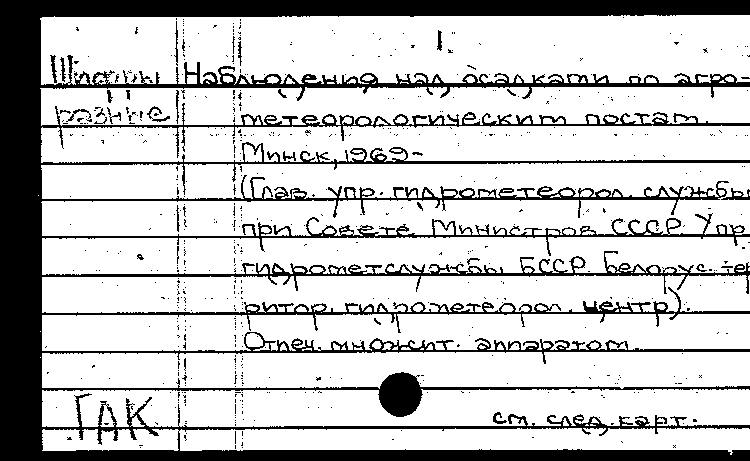 1.
Шифры Наблюдения над осадками по агро-
разные метеорологическим постам.
Минск, 1969-
(Глав. упр. гидрометеорол. службы
при Совете Министров СССР. Упр.
гидрометслужбы БССР. Белорус. тер
ритор. гидрометеорол. центр).
Отпеч. множит. аппаратом.
ГАК см. след. карт.